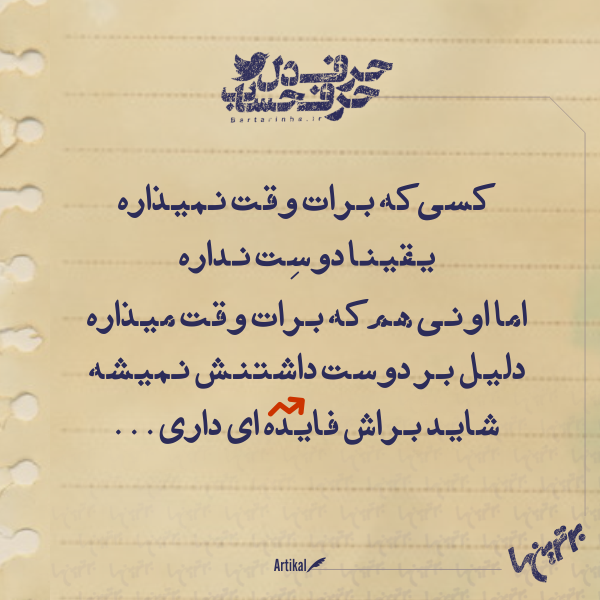 حرف دل
حرف حساب
Bartarinha.ir
کسی که برات وقت نمیذاره
یقینا دوسِت نداره
اما اونی هم که برات وقت میذاره
دلیل بر دوست داشتنش نمیشه
شاید براش فایده ای داری...
Artikal
برترین ها